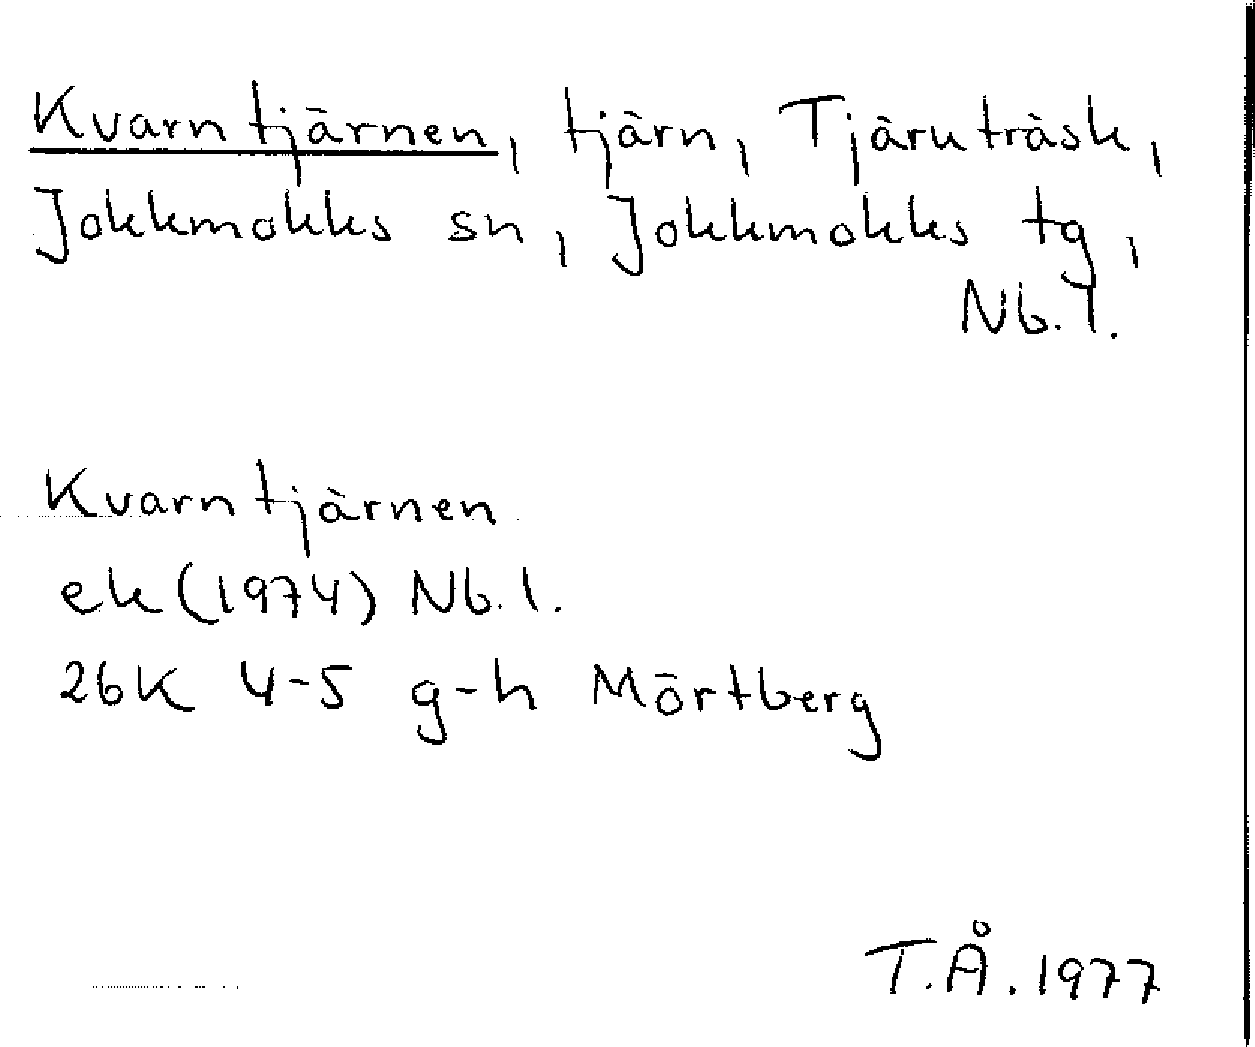 Kvarntjärnen, tjärn, Tjäruträsk,
Jokkmokks sn, Jokkmokks tg,
Nb.l.
Kvarntjärnen
ek (1974) Nb.l.
26K 4-5 g-h Mörtberg
T.Å. 1977